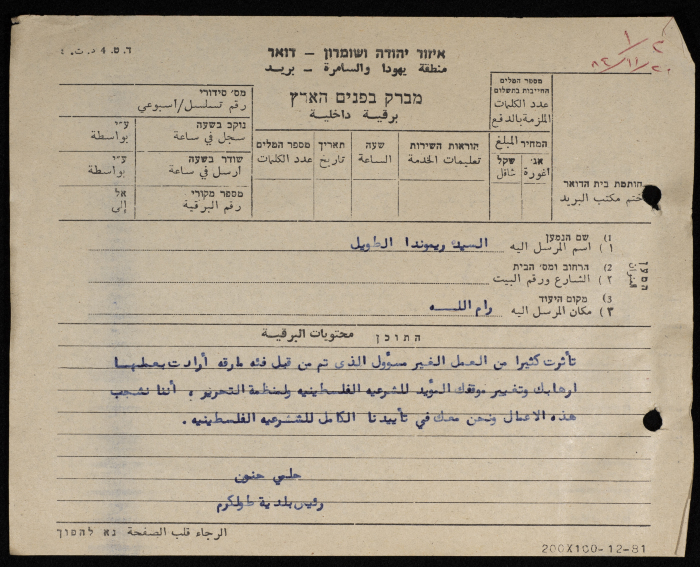 ד.ט. 4 ד.ת.
איזור יהודה ושומרון - דואר
منطقة يهودا والسامرة - بريد
١
٢٠/١١/٨٢
מברק בפנים הארץ
برقية داخلية
מספר המלים
החייבות בתשלום
عدد الكلمات
الملزمة بالدفع
המחיר المبلغ
אג' שקל
اغورة شاقل
חותמת בית הדואר
ختم مكتب البريد
הוראות השירות
تعليمات الخدمة
שעה
الساعة
תאריך
تاريخ
מספר המלים
عدد الكلمات
מס' סידורי
رقم تسلسل/اسبوعي
נוקב בשעה ע"י
سجل في ساعة بواسطة
שודר בשעה ע"י
ارسل في ساعة بواسطة
מספר מקורי אל
رقم البرقية إلى
המען
العنوان
1) שם הנמען
١) اسم المرسل اليه السيدة ريموندا الطويل
2) הרחוב ומס' הבית
٢) الشارع ورقم البيت
3) מקום היעוד
٣) مكان المرسل اليه رام اللـــه
התוכן محتويات البرقية
تأثرت كثيرا من العمل الغير مسؤول الذى تم من قبل فئه مارقه أرادت بعملهـا
ارهابك وتغيير موقفك المؤيد للشرعيه الفلسطينيه ولمنظمة التحرير ؛ أننا نشجب
هذه الاعمال ونحن معك في تأييدنا الكامل للشرعيه الفلسطينيه .
حلمي حنون
رئيس بلدية طولكرم
الرجاء قلب الصفحة נא להפוך
200X100-12-81